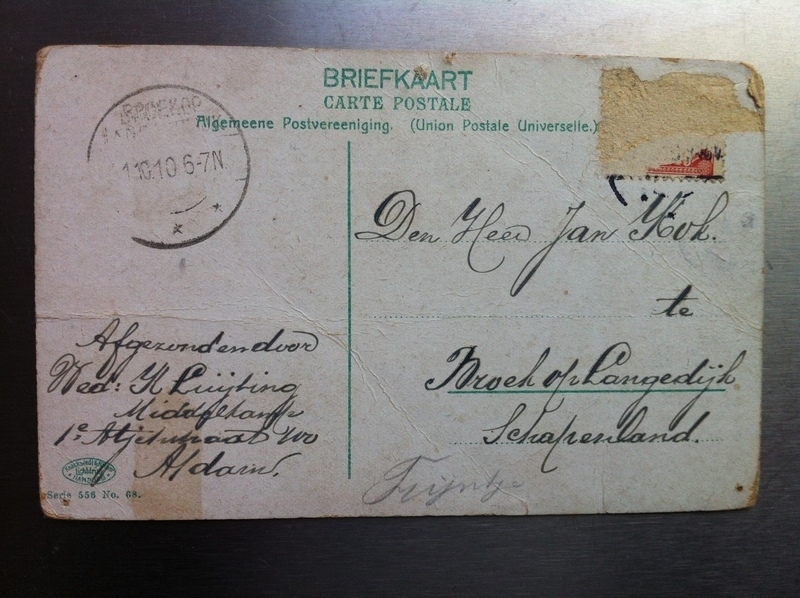 BRIEFKAART
CARTE POSTALE
Algemeene Postvereeniging. (Union Postale Universelle.)
BROEK OP
1.10.10 6-7N
Den Heer Jan Kok.
te
Broek op Langedijk
Schapenland.
Afgezonden door
Wed: K Luijting
Middelkamp
1e
Adam.
Trijntje
Serie 556 No. 68.